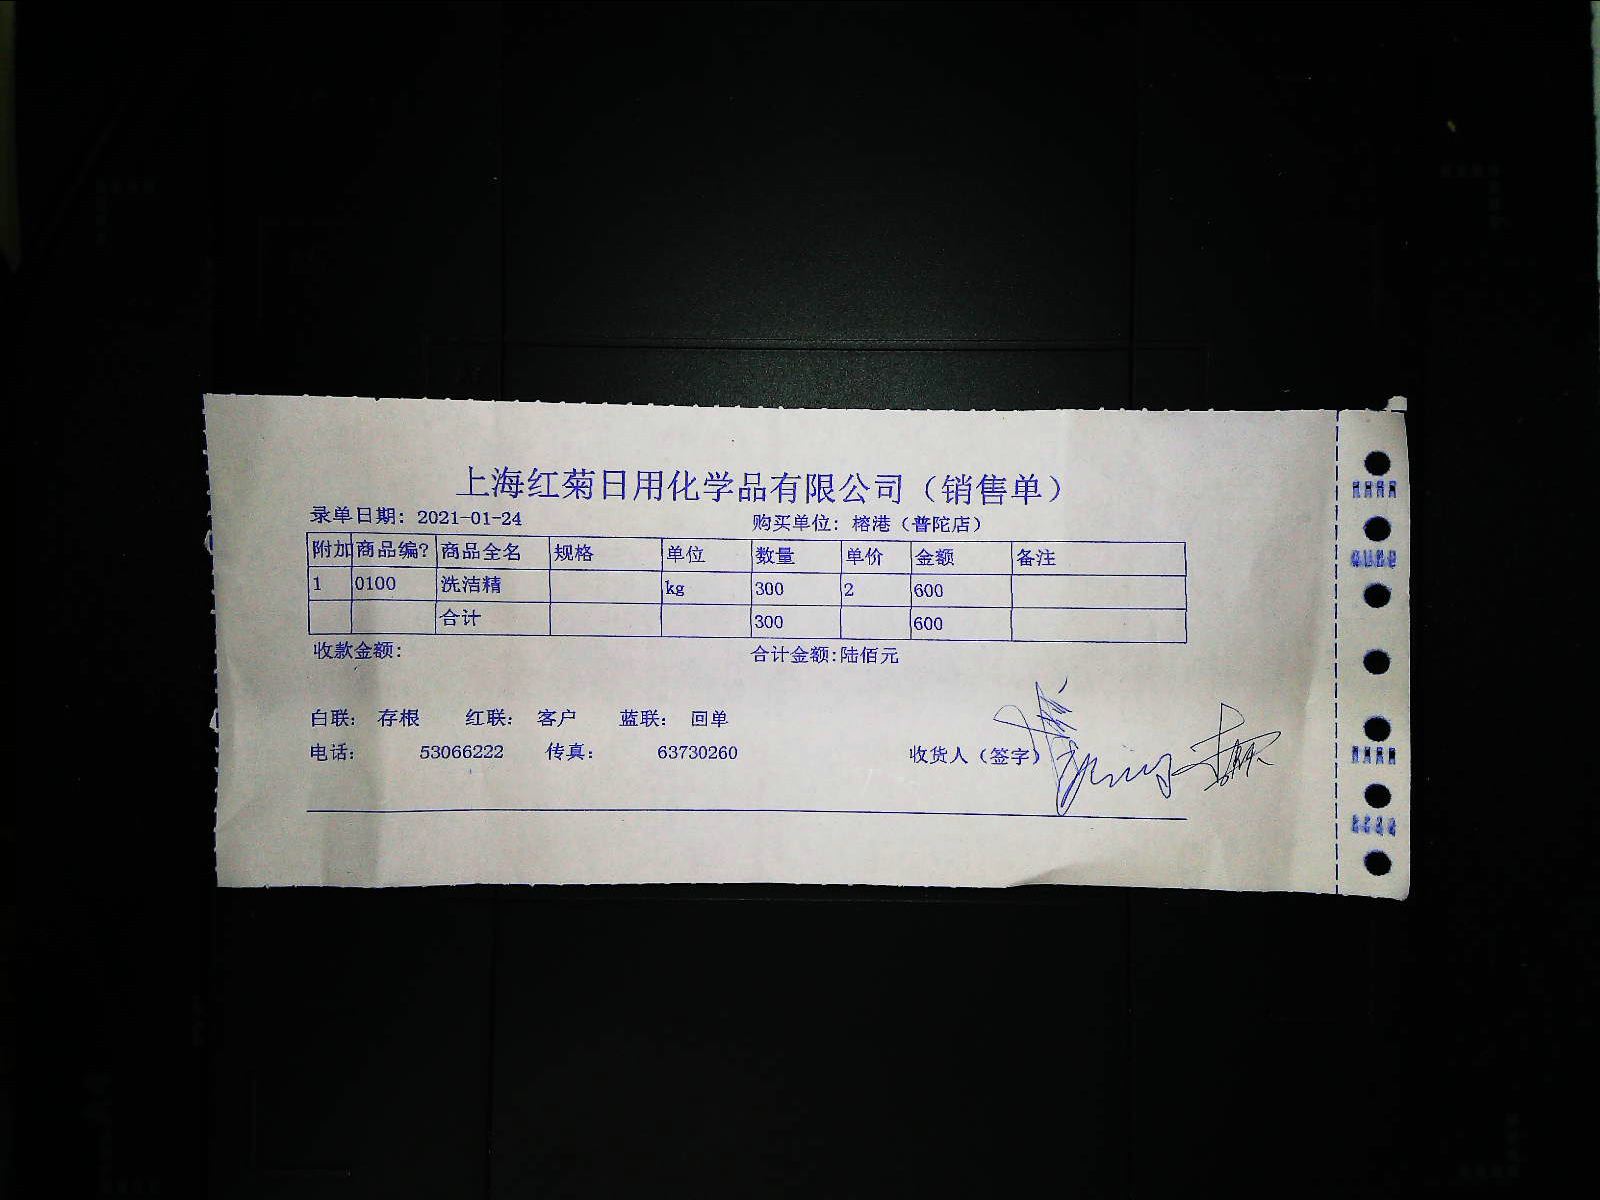 上海红菊日用化学品有限公司（销售单）
录单日期: 2021-01-24 购买单位: 榕港（普陀店）
附加 商品编? 商品全名 规格 单位 数量 单价 金额 备注
1 0100 洗洁精 kg 300 2 600
合计 300 600
收款金额: 合计金额:陆佰元
白联: 存根 红联: 客户 蓝联: 回单
电话: 53066222 传真: 63730260 收货人（签字）